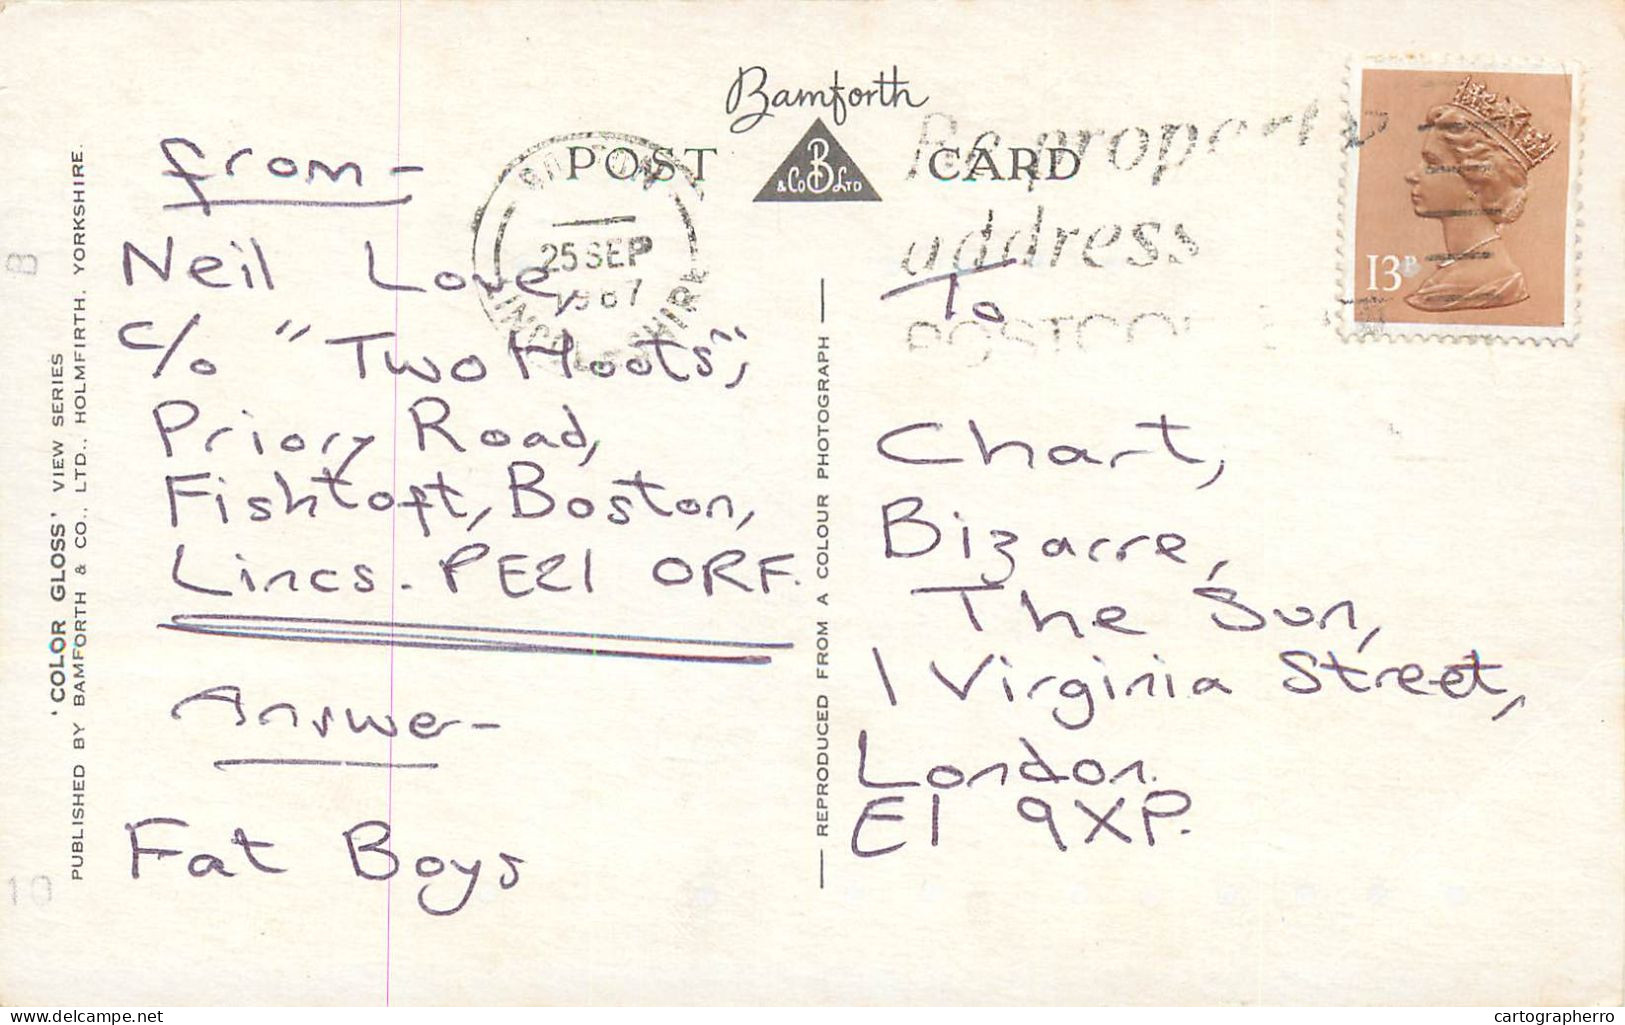 Bamforth
POST CARD
B
& Co LTD
Be properly
address
POSTCO
13P
BOSTON
25 SEP
1987
LINCOLNSHIRE
from -
Neil Love,
c/o "Two Hoots",
Priory Road,
Fishtoft, Boston,
Lincs. PE21 0RF.
Answer -
Fat Boys
To
Chart,
Bizarre,
The Sun,
1 Virginia Street,
London.
E1 9XP.
'COLOR GLOSS' VIEW SERIES
PUBLISHED BY BAMFORTH & CO., LTD., HOLMFIRTH, YORKSHIRE.
REPRODUCED FROM A COLOUR PHOTOGRAPH
B
10
delcampe.net
cartographerro